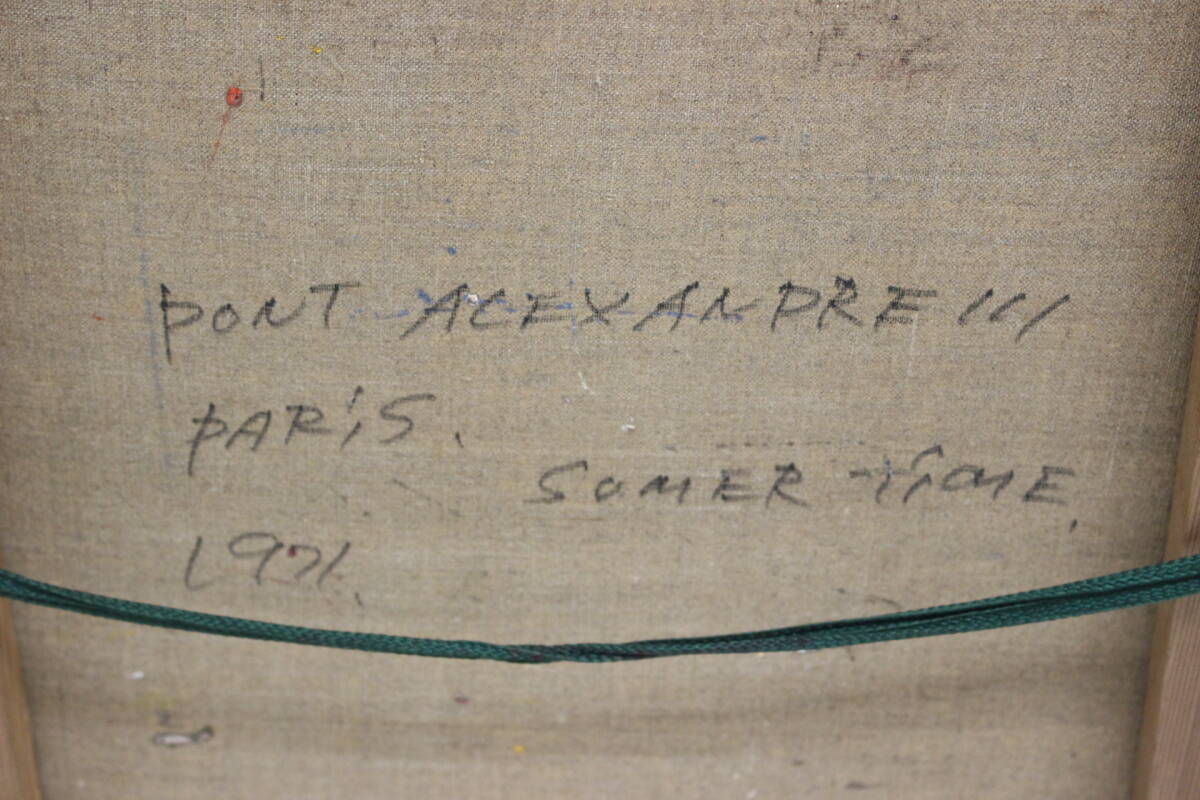 PONT ALEXANDRE III
PARIS.
SOMER TIME,
1971.